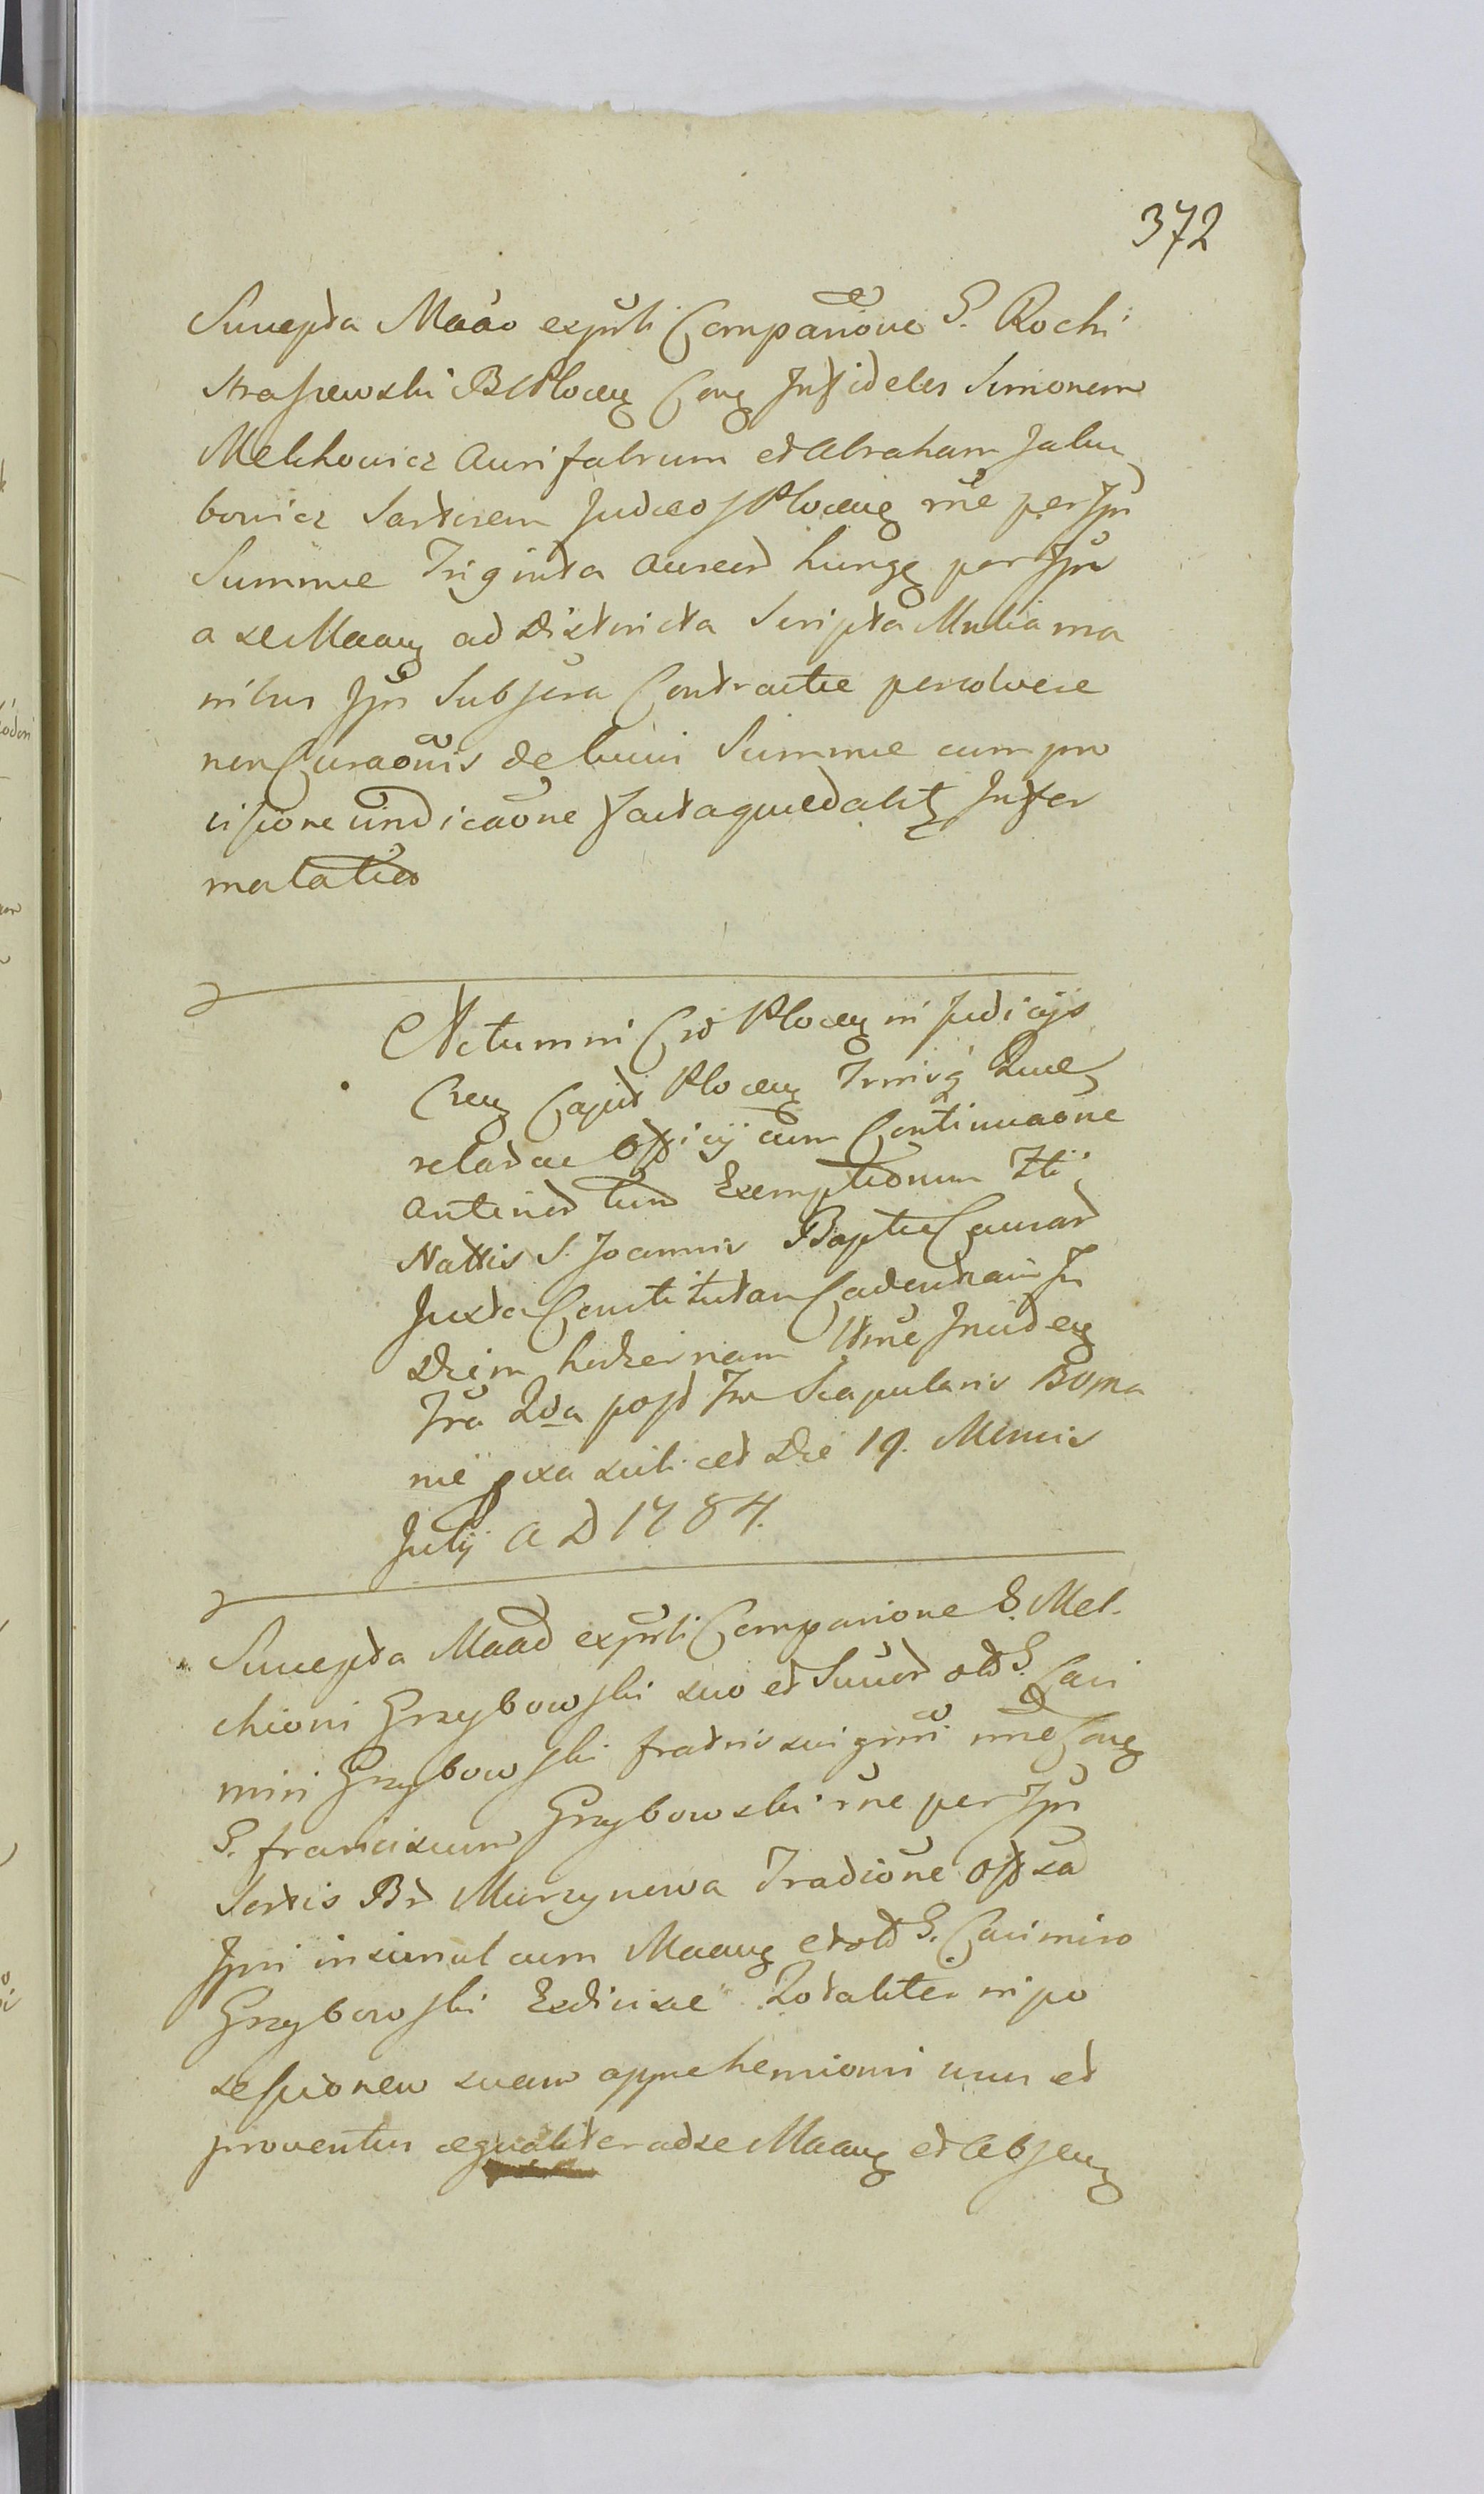 372
Suscepta Maāo exp̄nti Comparīone G. Rochi
Straszewski B Plocen Cong Infideles Simonem
Melchowicz Aurifabrum et Abraham Jaku
bowicz Sartorem Judaeos Plocens rñe per Ip̄n
Summae Triginta Aureor hung per Ip̄os
a se Maang ad districta Scripta Mutua ma
nibus Ip̄n Subscra Contractae persolvere
non Curaōnis debiti Summae cum pro
visione vindicaōne factaque dalit Infor
mālatiēs
Actum in Cō Plocen in Judicijs
Cren Capit Plocen Trnisq Quer
relar ac Officij cum Continuaōne
Antērior tum Exemptionum Fti
Nattis S. Joannis Baptae Causar
Juxta Constitutan Cadentiam In
Diem hodiernam Vtme Incideng
Fra 2da post Ftu Scapularis BVMa
riae fixa scilicet die 19. Mensis
Julij A D 1784.
Suscepta Maaō exp̄nti Comparione G. Mel
chioni Grzybowski suo et Succor olim G. Casi
miri Grzybowski fratris sui grñi nñe Cong
G. franciscum Grzybowski rñe per Ip̄n
Sortis Br Murzynowa Tradiōne offsa
Ipm insimul cum Maang et olim G. Casimiro
Grzybowski Exdivisae Totaliter in po
sessionem suam apprehensioni usus et
proventus aequaliter ad se Maang et Absen